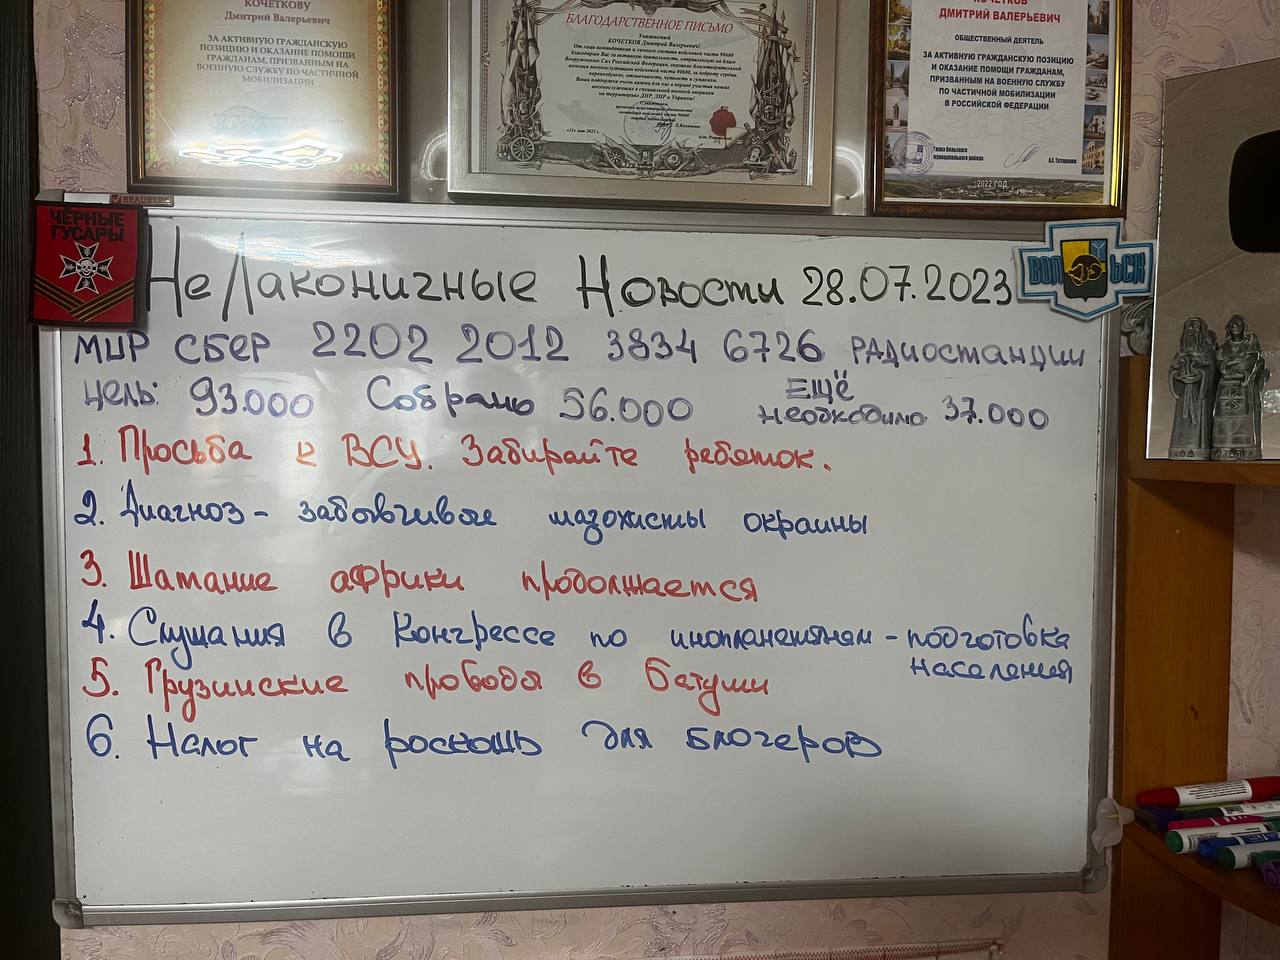 КОЧЕТКОВУ
Дмитрий Валерьевич
ЗА АКТИВНУЮ ГРАЖДАНСКУЮ
ПОЗИЦИЮ И ОКАЗАНИЕ ПОМОЩИ
ГРАЖДАНАМ, ПРИЗВАННЫМ НА
ВОЕННУЮ СЛУЖБУ ПО ЧАСТИЧНОЙ
МОБИЛИЗАЦИИ
БЛАГОДАРСТВЕННОЕ ПИСЬМО
Уважаемый
КОЧЕТКОВ Дмитрий Валерьевич!
От лица командования и личного состава войсковой части 90600
КОЧЕТКОВ
ДМИТРИЙ ВАЛЕРЬЕВИЧ
ОБЩЕСТВЕННЫЙ ДЕЯТЕЛЬ
ЗА АКТИВНУЮ ГРАЖДАНСКУЮ ПОЗИЦИЮ
И ОКАЗАНИЕ ПОМОЩИ ГРАЖДАНАМ,
ПРИЗВАННЫМ НА ВОЕННУЮ СЛУЖБУ
ПО ЧАСТИЧНОЙ МОБИЛИЗАЦИИ
В РОССИЙСКОЙ ФЕДЕРАЦИИ
Глава Вольского
муниципального района
2022 ГОД
BRAUBERG
ЧЁРНЫЕ
ГУСАРЫ
ВОЛЬСК
НеЛаконичные Новости 28.07.2023
МИР СБЕР 2202 2012 3834 6726 РАДИОСТАНЦИИ
Цель: 93.000 Собрано 56.000 ЕЩЁ необходимо 37.000
1. Просьба к ВСУ. Забирайте ребяток.
2. Диагноз - забывчивые мазохисты окраины
3. Шатание африки продолжается
4. Слушания в Конгрессе по инопланетянам - подготовка
населения
5. Грузинские провода в Батуми
6. Налог на роскошь для блогеров